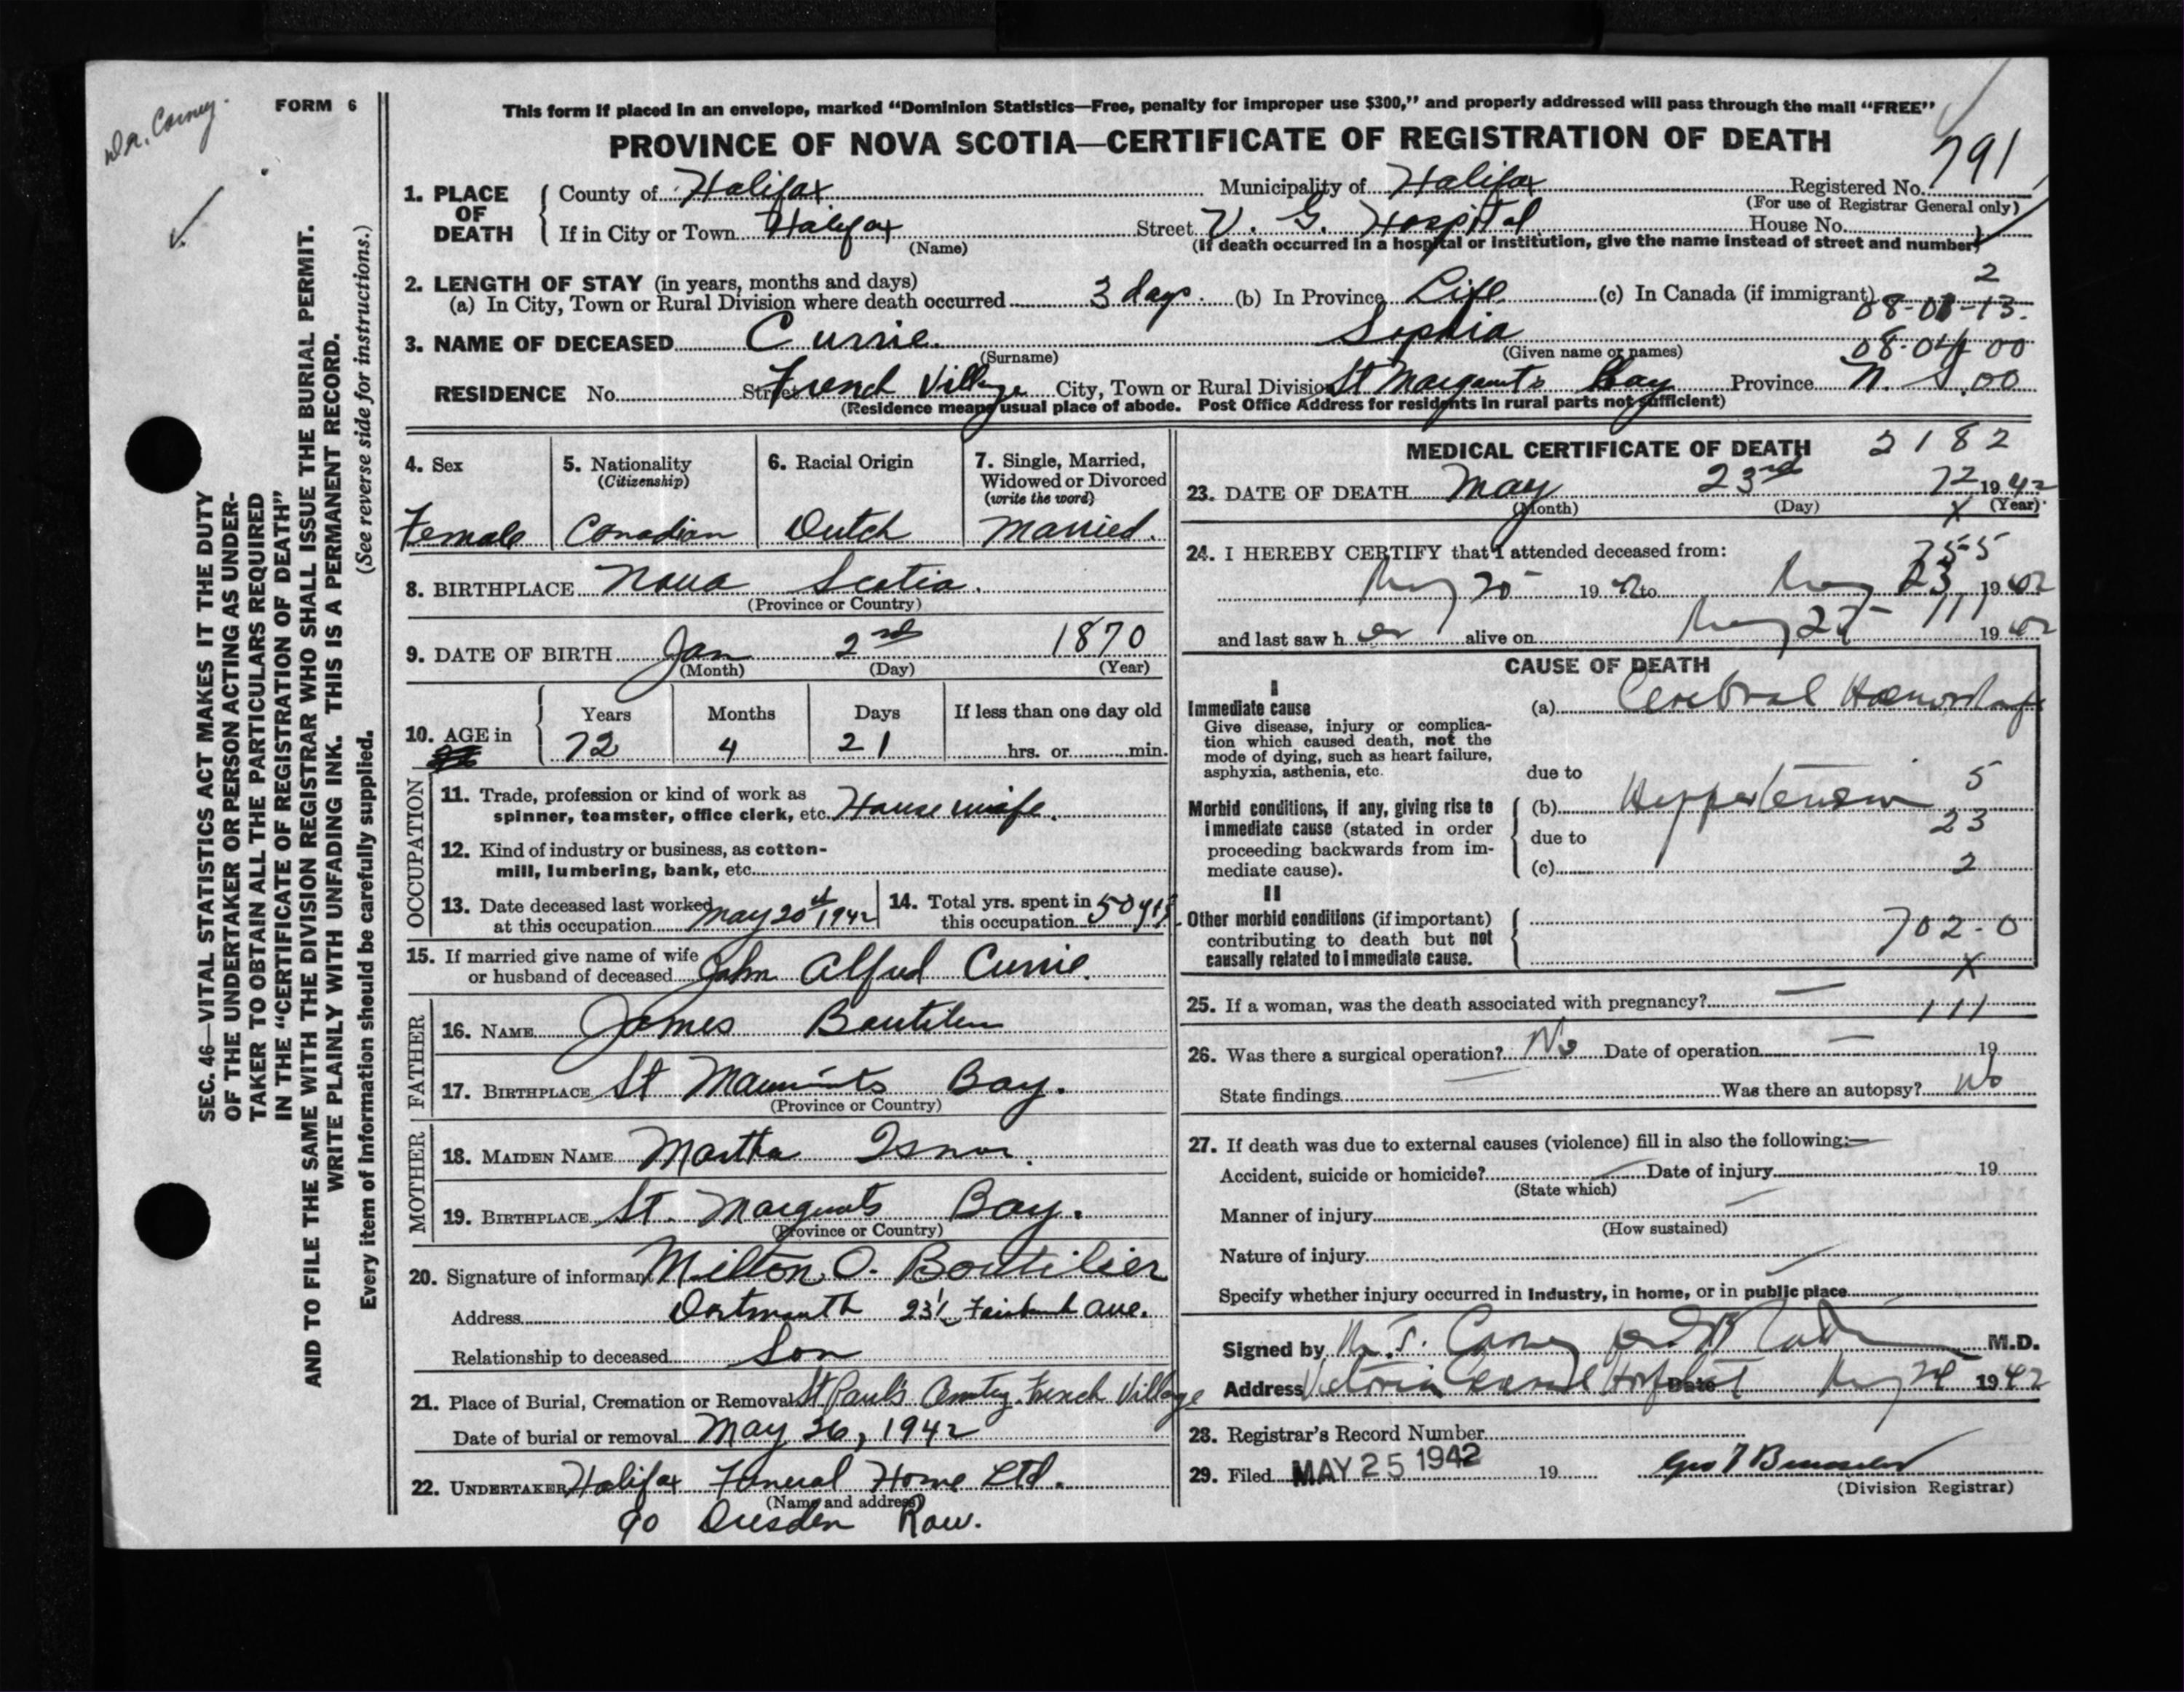 Dr. Carney.
FORM 6
This form if placed in an envelope, marked “Dominion Statistics—Free, penalty for improper use $300,” and properly addressed will pass through the mail “FREE”
PROVINCE OF NOVA SCOTIA—CERTIFICATE OF REGISTRATION OF DEATH
791
1. PLACE OF DEATH
County of Halifax Municipality of Halifax Registered No.
(For use of Registrar General only)
If in City or Town Halifax Street V. G. Hospital House No.
(Name) (If death occurred in a hospital or institution, give the name instead of street and number)
2. LENGTH OF STAY (in years, months and days) 2
(a) In City, Town or Rural Division where death occurred 3 days. (b) In Province Life (c) In Canada (if immigrant)
08-01-13.
3. NAME OF DECEASED Currie. Sophia
(Surname) (Given name or names) 08-04-00
RESIDENCE No. Street French Village City, Town or Rural Division St Margarets Bay Province N. S. 00
(Residence means usual place of abode. Post Office Address for residents in rural parts not sufficient)
4. Sex
Female
5. Nationality
(Citizenship)
Canadian
6. Racial Origin
Dutch
7. Single, Married, Widowed or Divorced
(write the word)
Married.
8. BIRTHPLACE Nova Scotia.
(Province or Country)
9. DATE OF BIRTH Jan 2nd 1870
(Month) (Day) (Year)
10. AGE in
Years Months Days If less than one day old
72 4 21 hrs. or min.
OCCUPATION
11. Trade, profession or kind of work as
spinner, teamster, office clerk, etc. House wife.
12. Kind of industry or business, as cotton-
mill, lumbering, bank, etc.
13. Date deceased last worked
at this occupation May 20th 1942
14. Total yrs. spent in
this occupation 50 yrs
15. If married give name of wife
or husband of deceased John Alfred Currie.
FATHER
16. NAME James Boutilier
17. BIRTHPLACE St Margarets Bay.
(Province or Country)
MOTHER
18. MAIDEN NAME Martha Isnor.
19. BIRTHPLACE St. Margarets Bay.
(Province or Country)
20. Signature of informant Milton O. Boutilier
Address Dartmouth 23½ Fairbank Ave.
Relationship to deceased Son
21. Place of Burial, Cremation or Removal St Paul's Cemetery. French Village
Date of burial or removal May 26, 1942
22. UNDERTAKER Halifax Funeral Home Ltd.
(Name and address)
90 Dresden Row.
MEDICAL CERTIFICATE OF DEATH 2182
23. DATE OF DEATH May 23rd 72 1942
(Month) (Day) X (Year)
24. I HEREBY CERTIFY that I attended deceased from:
May 20 1942 to May 23 1942
and last saw her alive on May 1942
111
CAUSE OF DEATH
I
Immediate cause
Give disease, injury or complica-
tion which caused death, not the
mode of dying, such as heart failure,
asphyxia, asthenia, etc.
(a) Cerebral Haemorrhage
due to
5
Morbid conditions, if any, giving rise to
immediate cause (stated in order
proceeding backwards from im-
mediate cause).
(b) Hypertension
23
due to
(c) 2
II
Other morbid conditions (if important)
contributing to death but not
causally related to immediate cause.
702-0
X
25. If a woman, was the death associated with pregnancy? —
111
26. Was there a surgical operation? No Date of operation — 19
State findings Was there an autopsy? No
27. If death was due to external causes (violence) fill in also the following:—
Accident, suicide or homicide? Date of injury 19
(State which)
Manner of injury
(How sustained)
Nature of injury
Specify whether injury occurred in Industry, in home, or in public place
Signed by Carney M.D.
Address Victoria General Hospital Date May 1942
28. Registrar's Record Number
29. Filed MAY 25 1942 19
(Division Registrar)
SEC. 46—VITAL STATISTICS ACT MAKES IT THE DUTY
OF THE UNDERTAKER OR PERSON ACTING AS UNDER-
TAKER TO OBTAIN ALL THE PARTICULARS REQUIRED
IN THE “CERTIFICATE OF REGISTRATION OF DEATH”
AND TO FILE THE SAME WITH THE DIVISION REGISTRAR WHO SHALL ISSUE THE BURIAL PERMIT.
WRITE PLAINLY WITH UNFADING INK. THIS IS A PERMANENT RECORD.
Every item of Information should be carefully supplied. (See reverse side for instructions.)